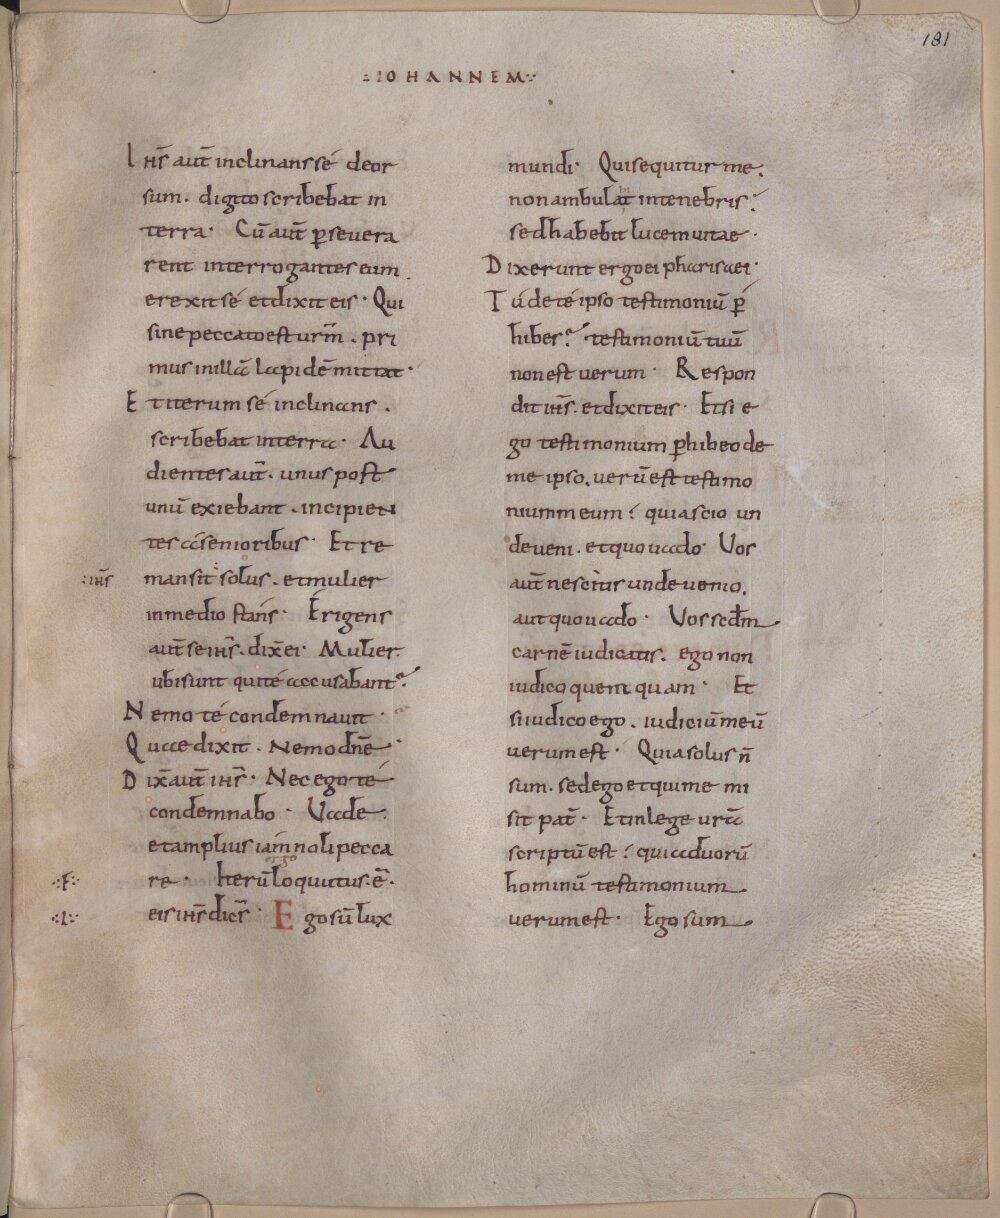 181
:IOHANNEM:
Ihs̄ aut̄ inclinans sé deor
sum. digito scribebat in
terra· Cū aut̄ ꝑsevera
rent interrogantes eum.
erexit sé et dixit eis· Qui
sine peccato est urm̄. pri
mus in illā lapidē mittat·
Et iterum sé inclinans.
scribebat interra· Au
dientes aut̄. unus post
unū exiebant. incipien
tes a senioribus· Et re
:ihs̄ mansit solus. et mulier
in medio stans· Erigens
aut̄ se ihs̄. dix̄ ei· Mulier
ubi sunt qui té accusabant?
Nemo té condemnavit·
Quae dixit. Nemo dnē·
Dix̄ aut̄ ihs̄· Nec ego té
condemnabo· Vade.
et amplius iam noli pecca
ergo
·F· re· Iterū loquutus· ē·
·I· eis ihs̄ dicēs· Ego sū lux
mundi· Qui sequitur me.
non ambulat in tenebris.
sed habebit lucem vitae·
Dixerunt ergo ei pharisaei·
Tú de té ipso testimoniū ꝑ
hibes? testimoniū tuū
non est verum· Respon
dit ihs̄. et dixit eis· Et si e
go testimonium ꝑhibeo de
me ipso. verū est testimo
nium meum: quia scio un
de veni. et quo vado· Vos
aut̄ nescitis unde venio.
aut quo vado· Vos secdm̄
carnē iudicatis. ego non
iudico quem quam· Et
si iudico ego. iudiciū meū
verum est· Quia solus n̄
sum. sed ego et qui me mi
sit pat̄· Et in lege urā
scriptū est: quia duorū
hominū testimonium
verum est· Ego sum